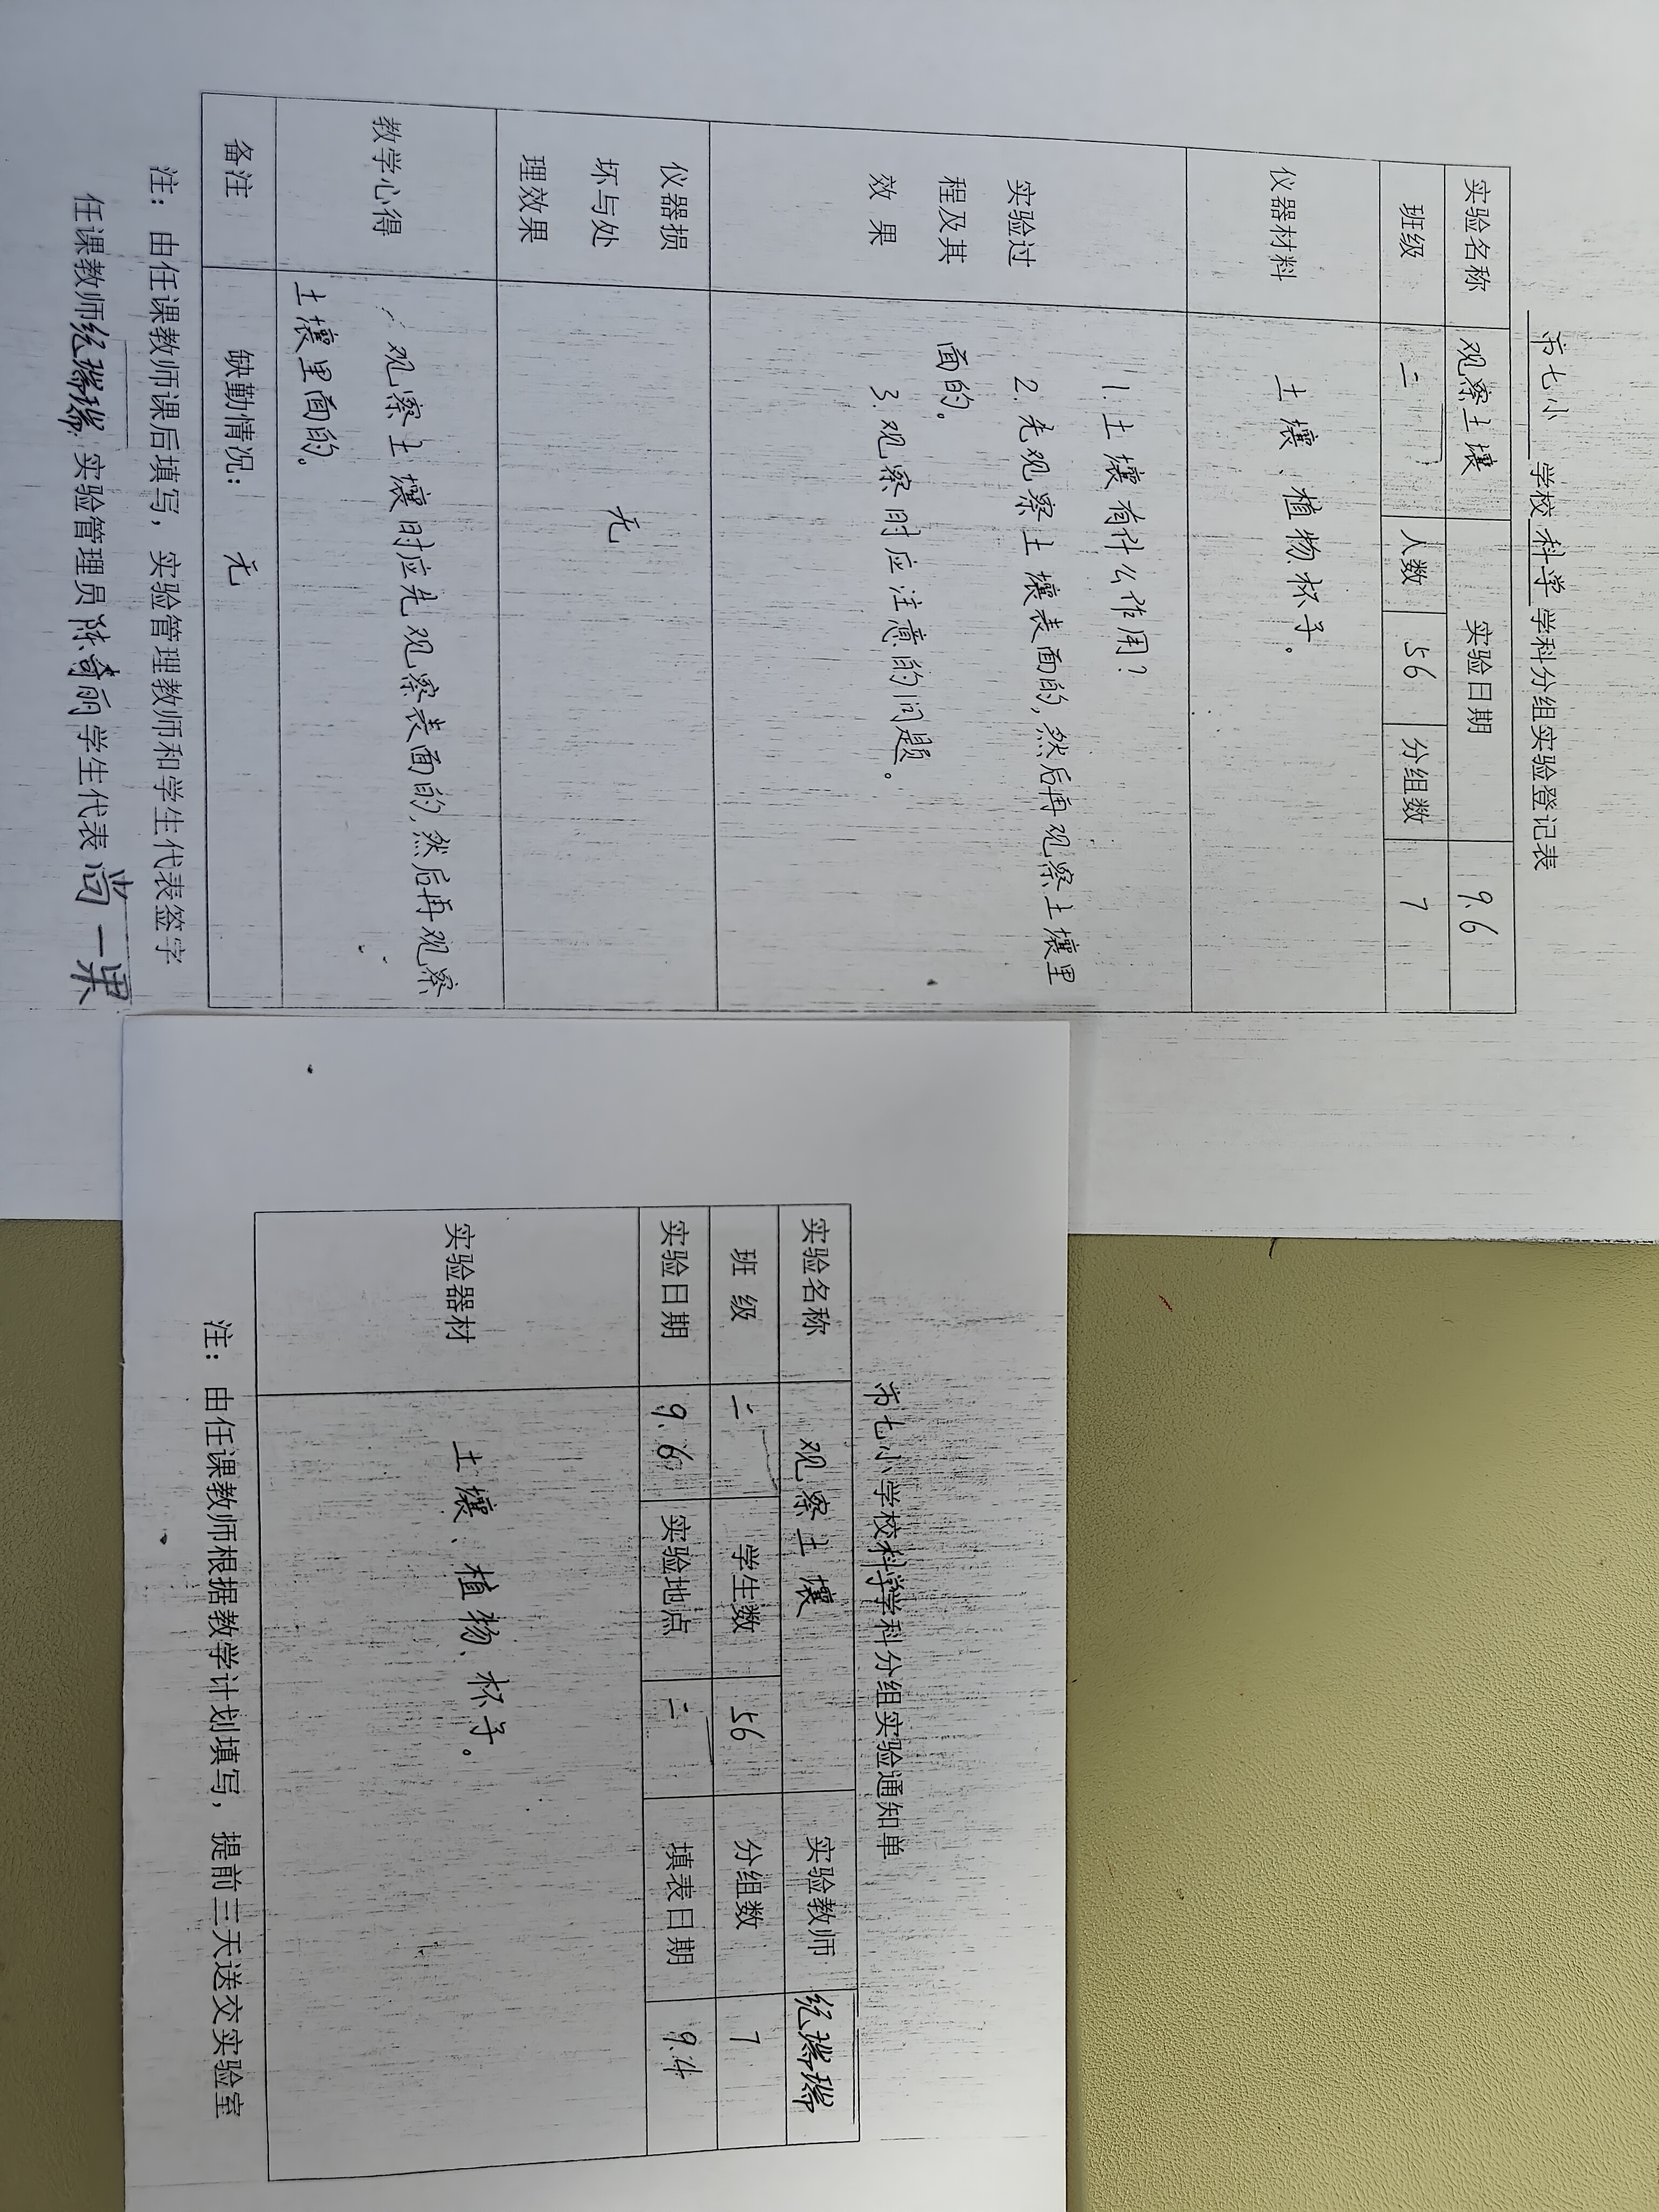 市七小 学校 科学 学科分组实验登记表
实验名称 观察土壤 实验日期 9.6
班级 二 人数 56 分组数 7
仪器材料 土壤、植物、杯子。
实验过
程及其
效 果
1. 土壤有什么作用?
2. 先观察土壤表面的,然后再观察土壤里
面的。
3. 观察时应注意的问题。
仪器损
坏与处
理效果
无
教学心得
观察土壤时应先观察表面的,然后再观察
土壤里面的。
备注 缺勤情况: 无
注: 由任课教师课后填写,实验管理教师和学生代表签字
任课教师 纪瑞瑞 实验管理员 陈奇丽 学生代表 尚一果
市七小学校科学学科分组实验通知单
实验名称 观察土壤 实验教师 纪瑞瑞
班 级 二 学生数 56 分组数 7
实验日期 9.6 实验地点 二 填表日期 9.4
实验器材 土壤、植物、杯子。
注: 由任课教师根据教学计划填写,提前三天送交实验室